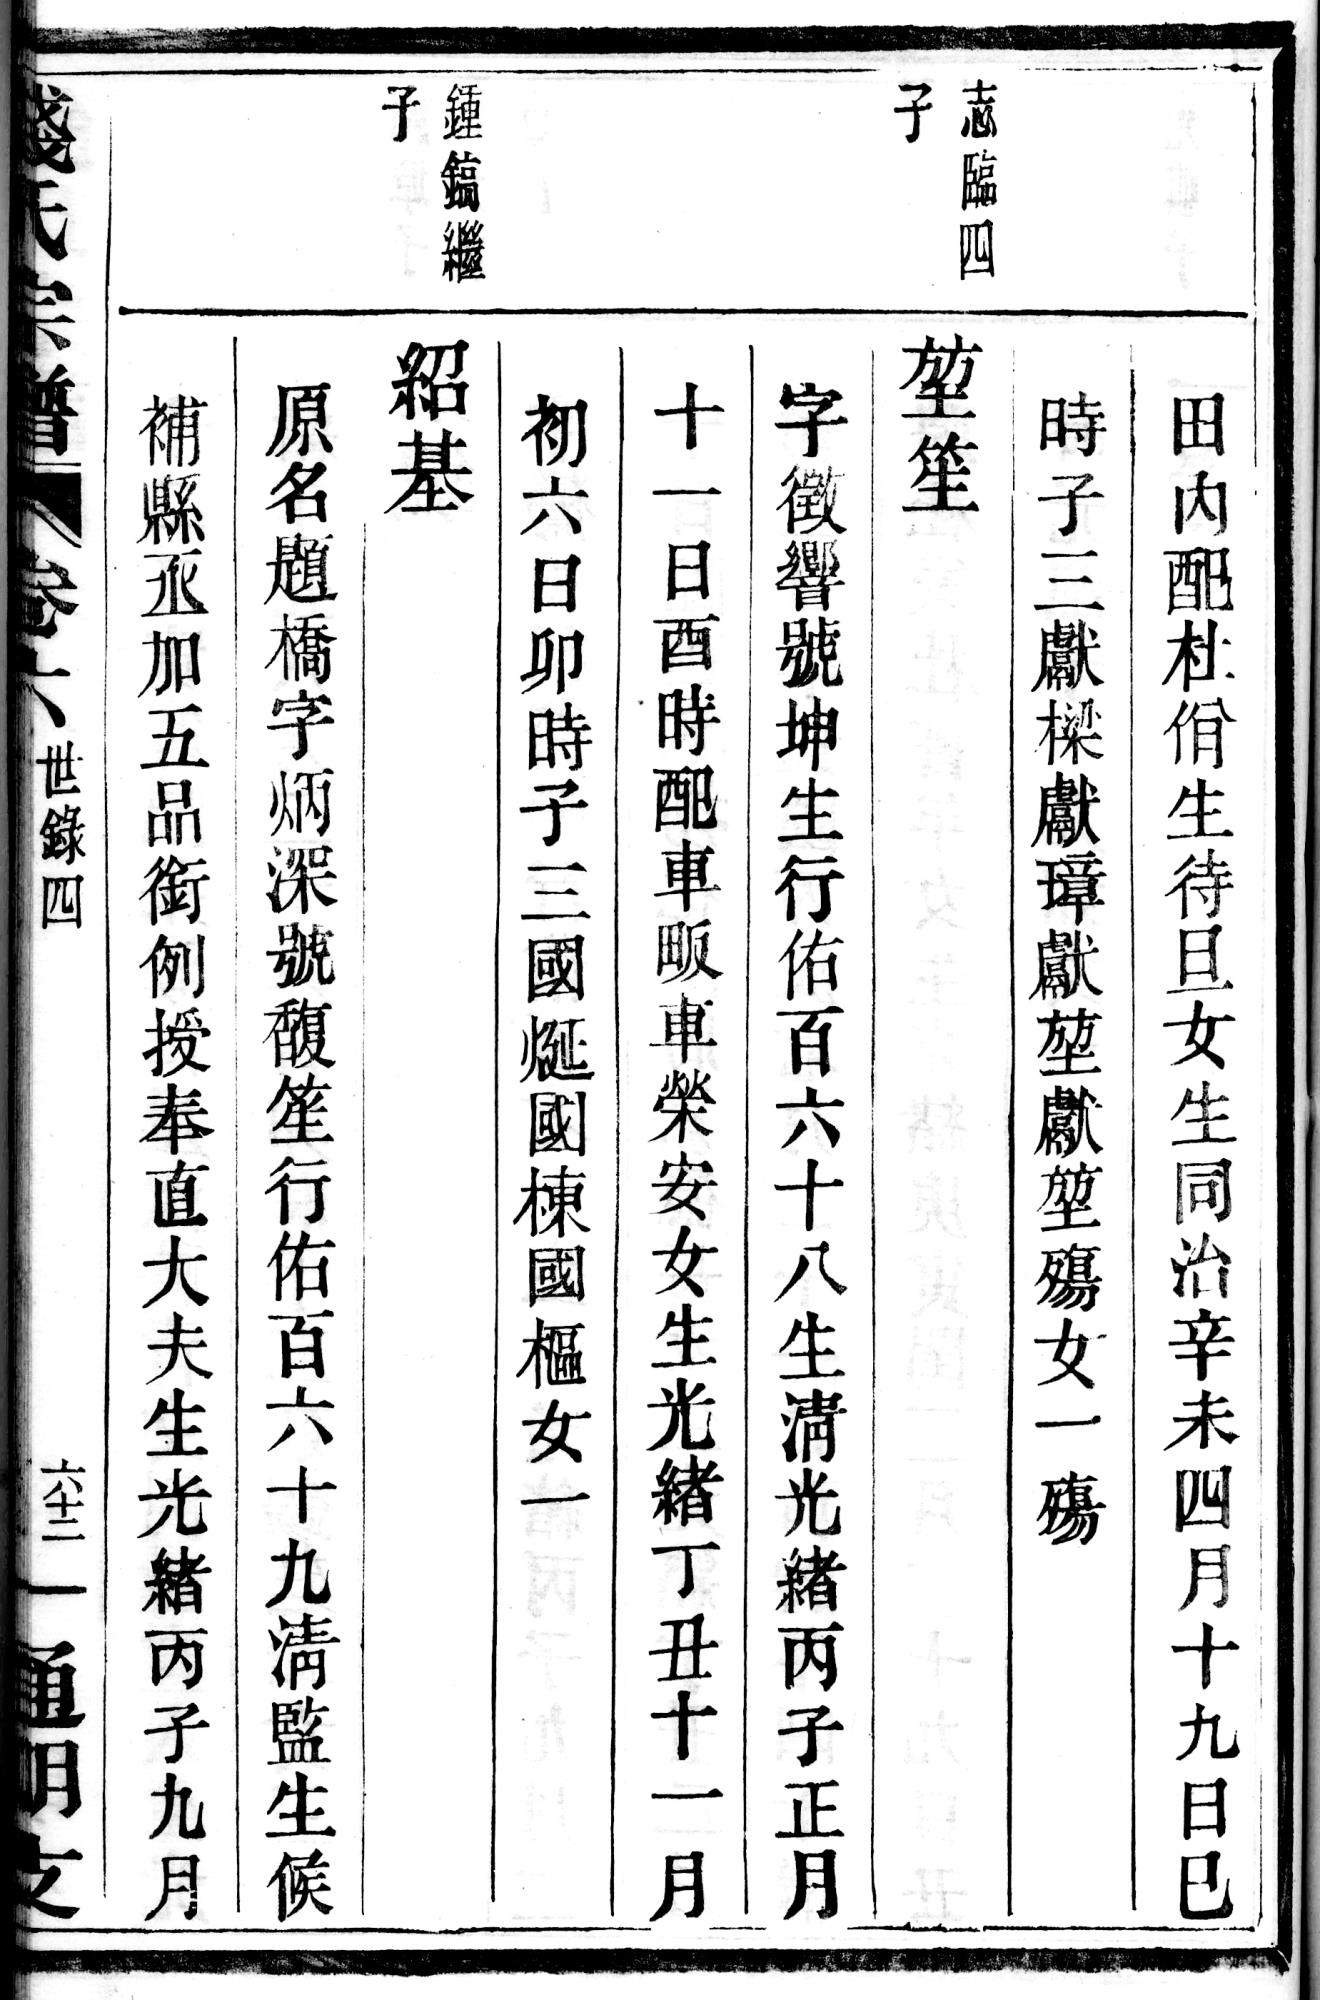 田內配杜佾生待旦女生同治辛未四月十九日巳
時子三獻樑獻璋獻堃獻堃殤女一殤
志臨四
子
堃笙
字徵響號坤生行佑百六十八生淸光緖丙子正月
十一日酉時配車畈車榮安女生光緖丁丑十一月
初六日卯時子三國烻國棟國樞女一
鍾鎬繼
子
紹基
原名題橋字炳深號馥笙行佑百六十九淸監生候
補縣丞加五品銜例授奉直大夫生光緖丙子九月
錢氏宗譜 卷六 世錄四 六十二 通明支